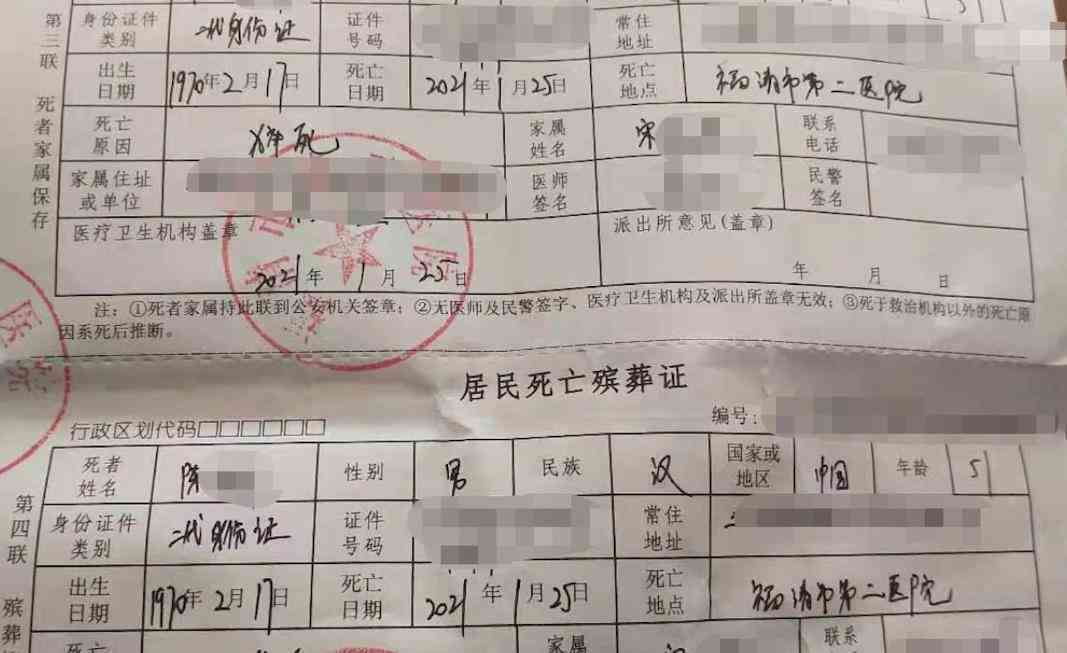 第三联 死者家属保存
身份证件类别 二代身份证 证件号码 常住地址
出生日期 1970年2月17日 死亡日期 2021年1月25日 死亡地点 福清市第二医院
死亡原因 猝死 家属姓名 宋 联系电话
家属住址或单位 医师签名 民警签名
医疗卫生机构盖章 派出所意见(盖章)
2021年1月25日 年 月 日
注：①死者家属持此联到公安机关签章；②无医师及民警签字、医疗卫生机构及派出所盖章无效；③死于救治机构以外的死亡原
因系死后推断。
居民死亡殡葬证
编号：
行政区划代码□□□□□□
第四联 殡葬
死者姓名 陈 性别 男 民族 汉 国家或地区 中国 年龄 51
身份证件类别 二代身份证 证件号码 常住地址
出生日期 1970年2月17日 死亡日期 2021年1月25日 死亡地点 福清市第二医院
死亡 家属 联系